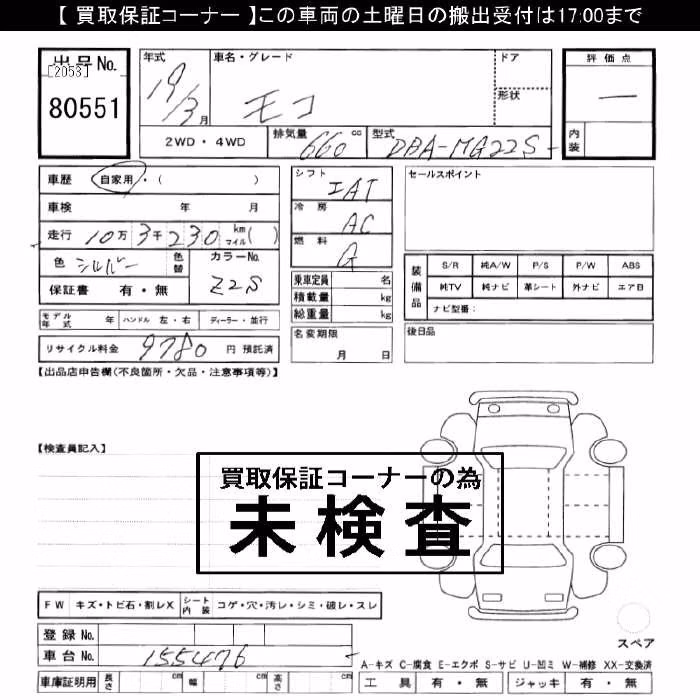 【 買取保証コーナー 】この車両の土曜日の搬出受付は17:00まで
出品No.
[2053]
80551
年式
19/3月
車名・グレード
モコ
ドア
形状
評価点
—
内装
2WD・4WD
排気量 660 cc
型式 DBA-MG22S-
車歴 自家用・( )
車検 年 月
走行 10万3千230 km マイル( )
色 シルバー 色替
カラーNo. Z2S
保証書 有・無
モデル年式 年 ハンドル 左・右 ディーラー・並行
リサイクル料金 9780 円 預託済
シフト IAT
冷房 AC
燃料 G
乗車定員 名
積載量 kg
総重量 kg
名変期限
月 日
セールスポイント
装備品
S/R 純A/W P/S P/W ABS
純TV 純ナビ 革シート 外ナビ エアB
ナビ型番:
後日品
【出品店申告欄(不良箇所・欠品・注意事項等)】
【検査員記入】
買取保証コーナーの為
未検査
FW キズ・トビ石・割レX シート内装 コゲ・穴・汚レ・シミ・破レ・スレ
登録No.
車台No. 155476
車庫証明用 長さ cm 幅 cm 高さ cm
スペア
A-キズ C-腐食 E-エクボ S-サビ U-凹ミ W-補修 XX-交換済
工具 有・無 ジャッキ 有・無